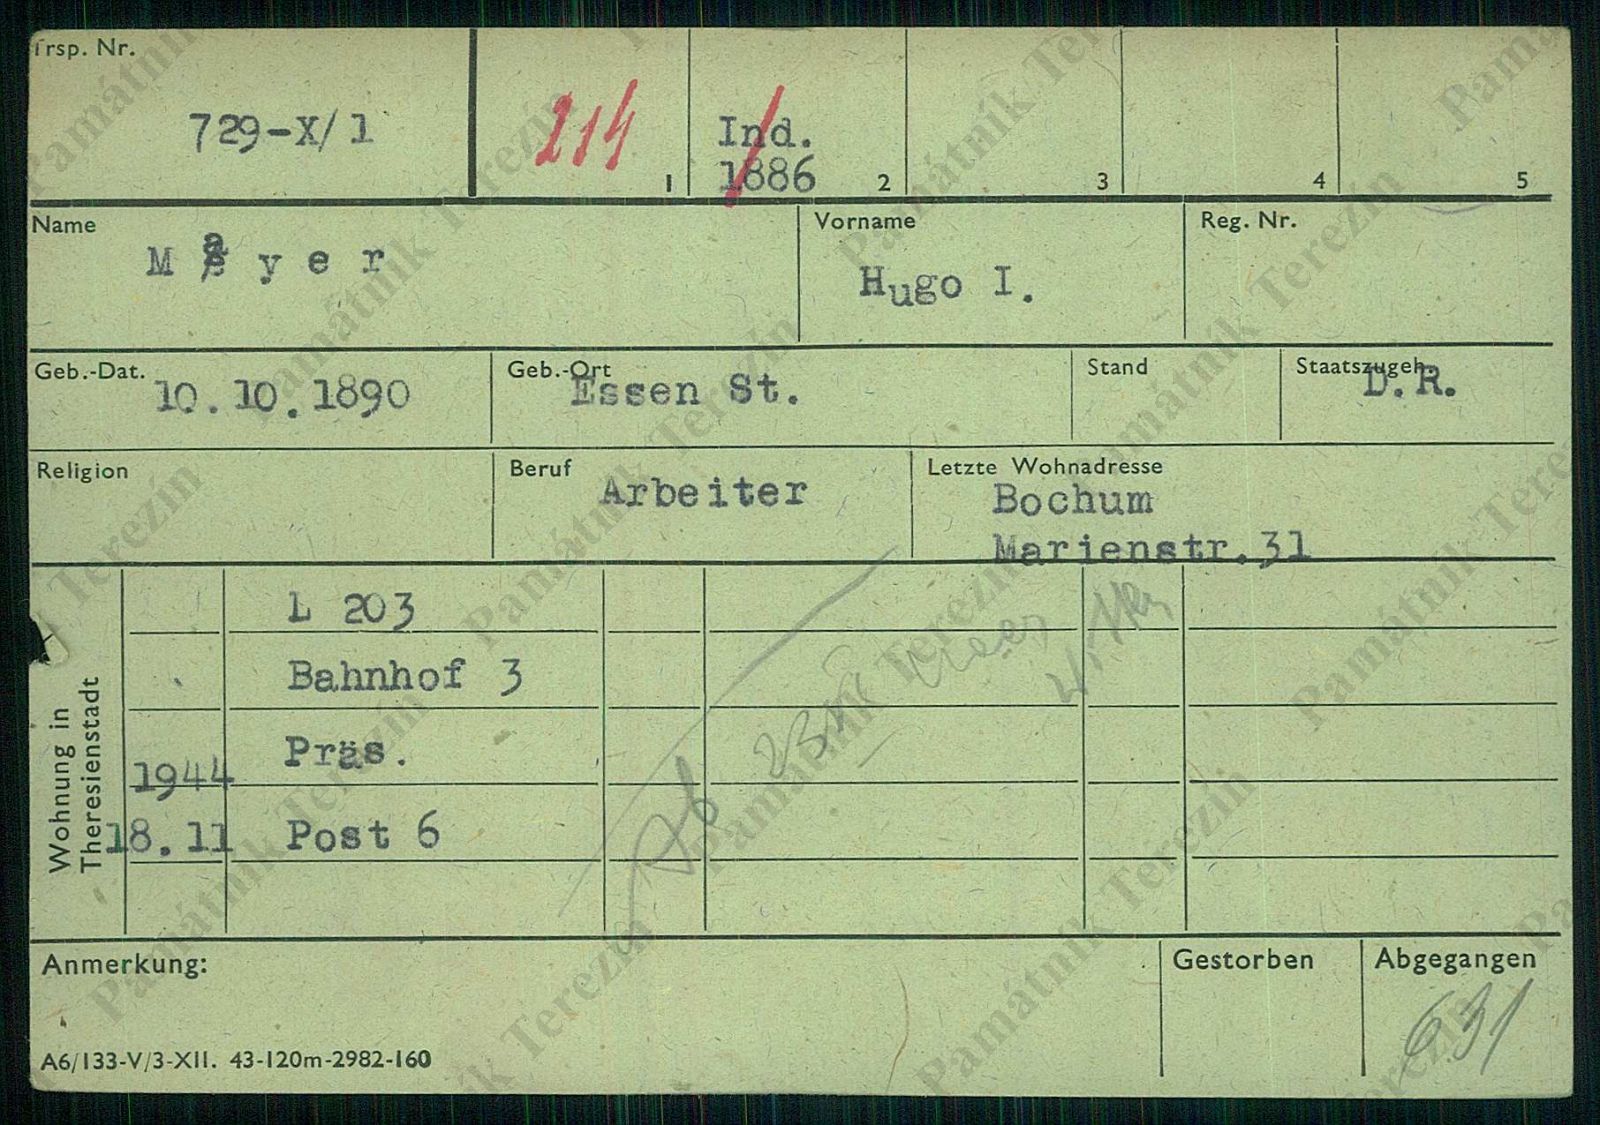 Trsp. Nr.
729-X/1
214
1
Ind.
1886
2
3
4
5
Name
Mayer
Vorname
Hugo I.
Reg. Nr.
Geb.-Dat.
10.10.1890
Geb.-Ort
Essen St.
Stand
Staatszugeh.
D.R.
Religion
Beruf
Arbeiter
Letzte Wohnadresse
Bochum
Marienstr.31
Wohnung in
Theresienstadt
L 203
Bahnhof 3
Präs.
1944
18.11 Post 6
Ab
Anmerkung:
Gestorben
Abgegangen
631
A6/133-V/3-XII. 43-120m-2982-160
Památník Terezín